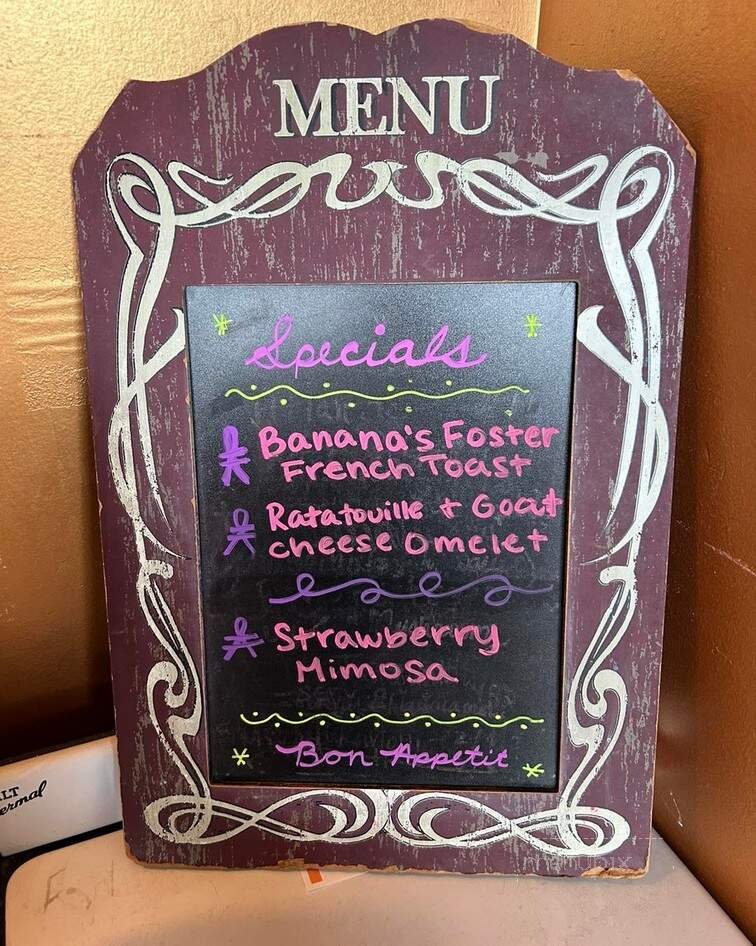 MENU
Specials
Banana's Foster
French Toast
Ratatouille + Goat
cheese Omelet
Strawberry
Mimosa
Bon Appetit
LT
ermal
menupix